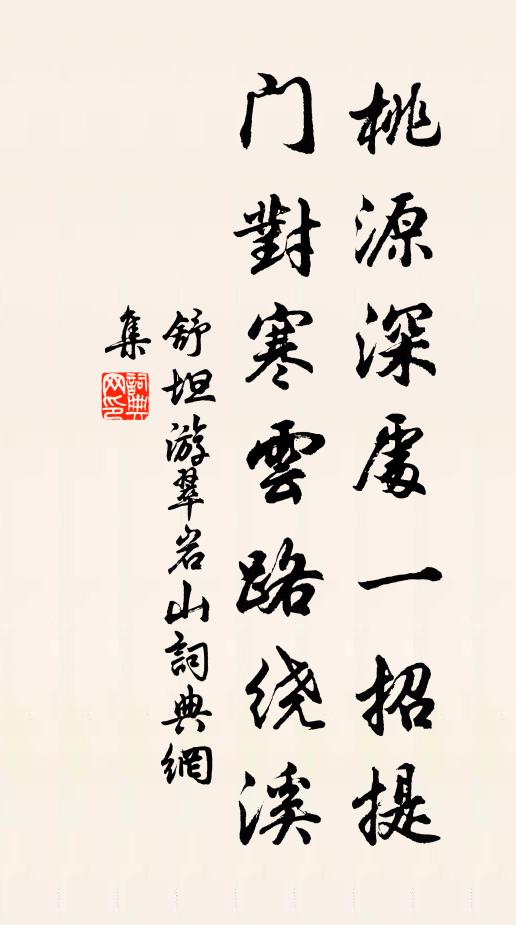 桃源深處一招提
门對寒雲路绕溪
舒坦游翠岩山詞典網
集
詞典
网印